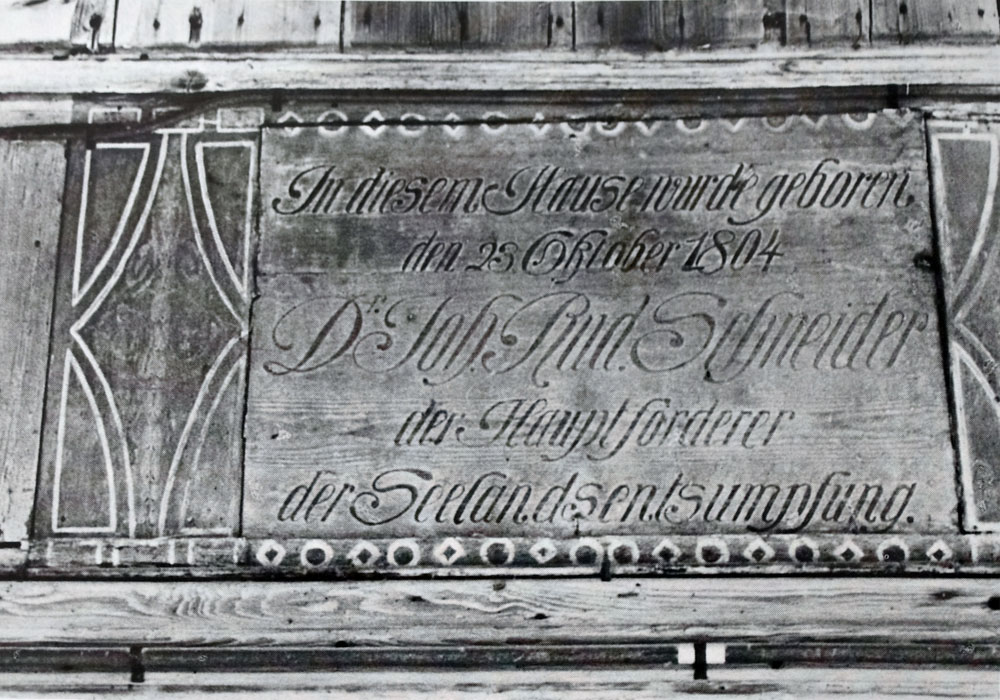 In diesem Hause wurde geboren
den 23 Oktober 1804
Dr. Joh. Rud. Schneider
der Hauptförderer
der Seelandsentsumpfung.